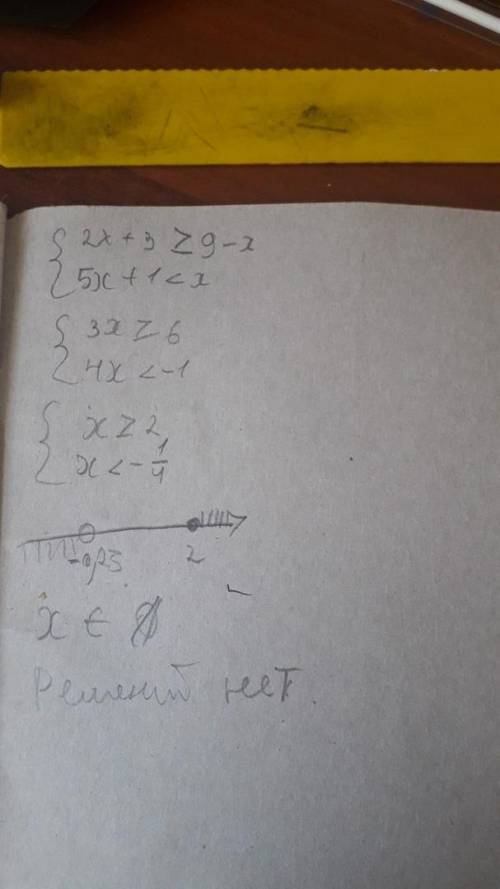 2x + 3 ≥ 9 - x
5x + 1 < x
3x ≥ 6
4x < -1
x ≥ 2
x < -1/4
-0,25 2
x ∈ ∅
Решений нет.